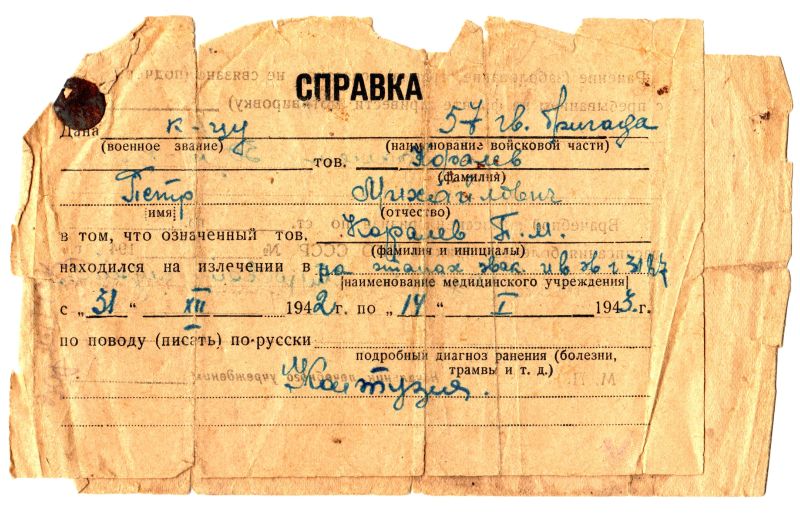 СПРАВКА
Дана к-цу 57 гв. бригада
(военное звание) (наименование войсковой части)
тов. Коралев
(фамилия)
Петр Михайлович
имя (отчество)
в том, что означенный тов. Коралев П. М.
(фамилия и инициалы)
находился на излечении в на этапах эвак и в эв г
[наименование медицинского учреждения]
с „31“ XII 1942 г. по „14“ I 1943 г.
по поводу (писать) по-русски
подробный диагноз ранения (болезни,
трамвы и т. д.)
Контузия.